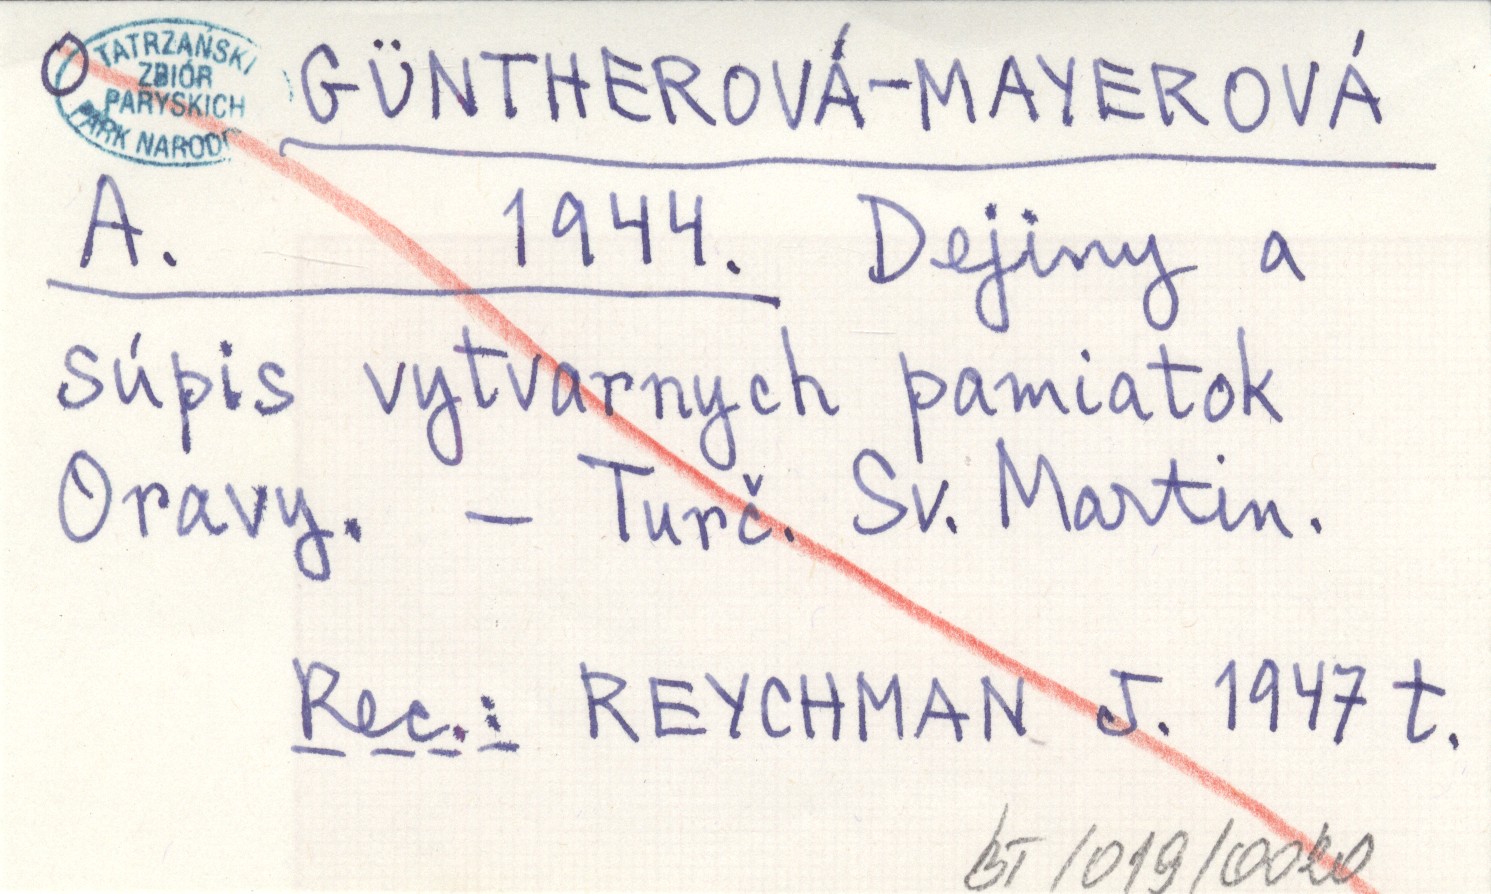 TATRZAŃSKI
ZBIÓR
PARYSKICH
PARK NARODO
GÜNTHEROVÁ-MAYEROVÁ
A. 1944. Dejiny a
súpis vytvarnych pamiatok
Oravy. — Turč. Sv. Martin.
Rec.: REYCHMAN J. 1947 t.
BT/019/0020